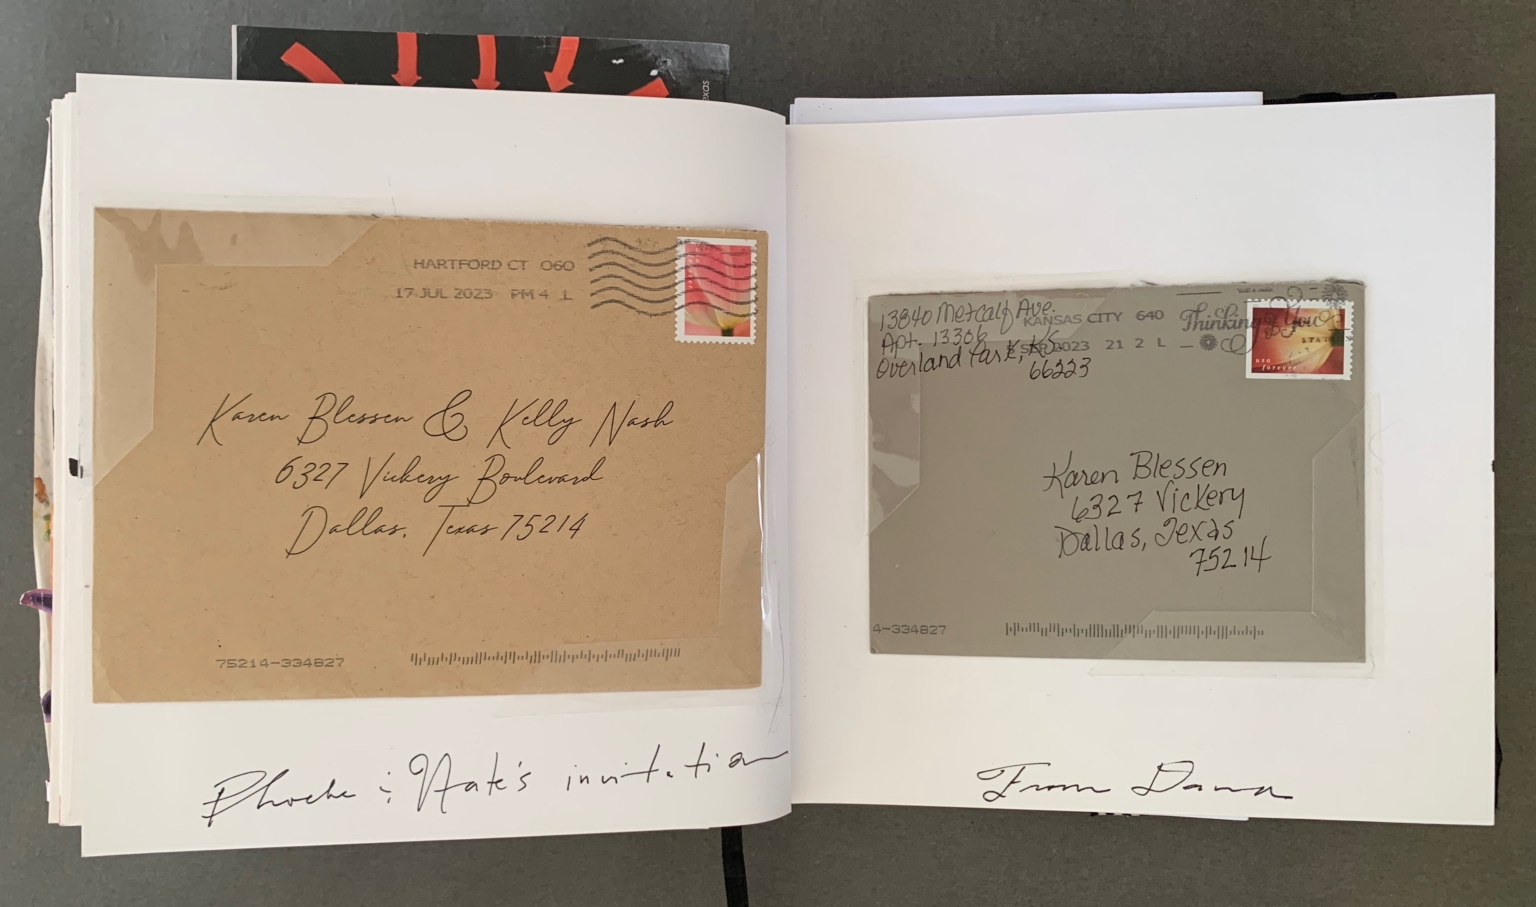 exas
HARTFORD CT 060
17 JUL 2023 PM 4 L
Karen Blessen & Kelly Nash
6327 Vickery Boulevard
Dallas, Texas 75214
75214-334827
Phoebe & Nate's invitation
13840 Metcalf Ave.
Apt. 13306
Overland Park, KS
66223
KANSAS CITY 640
SEP 2023 21 2 L
Thinking of You
usa
forever
Karen Blessen
6327 Vickery
Dallas, Texas
75214
4-334827
From Dawn